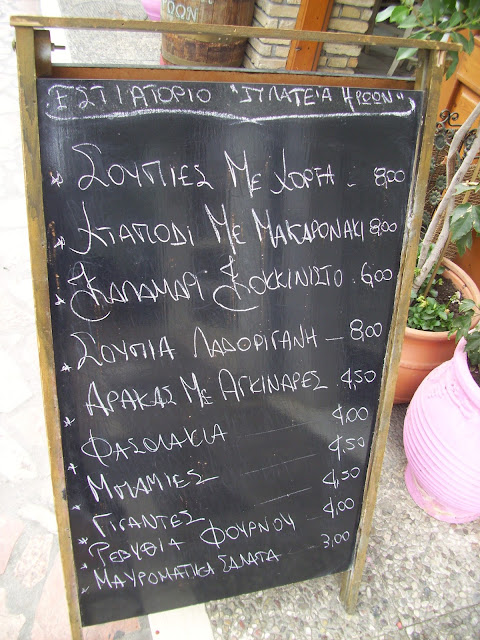 ΕΣΤΙΑΤΟΡΙΟ "ΠΛΑΤΕΙΑ ΗΡΩΩΝ"
* ΣΟΥΠΙΕΣ ΜΕ ΧΟΡΤΑ - 8,00
* ΧΤΑΠΟΔΙ ΜΕ ΜΑΚΑΡΟΝΑΚΙ 8,00
* ΚΑΛΑΜΑΡΙ ΚΟΚΚΙΝΙΣΤΟ . 6,00
* ΣΟΥΠΙΑ ΛΑΔΟΡΙΓΑΝΗ - 8,00
* ΑΡΑΚΑΣ ΜΕ ΑΓΚΙΝΑΡΕΣ 4,50
* ΦΑΣΟΛΑΚΙΑ 4,00
* ΜΠΑΜΙΕΣ 4,50
* ΓΙΓΑΝΤΕΣ 4,50
* ΡΕΒΥΘΙΑ ΦΟΥΡΝΟΥ - 4,00
* ΜΑΥΡΟΜΑΤΙΚΑ ΣΑΛΑΤΑ - 3,00